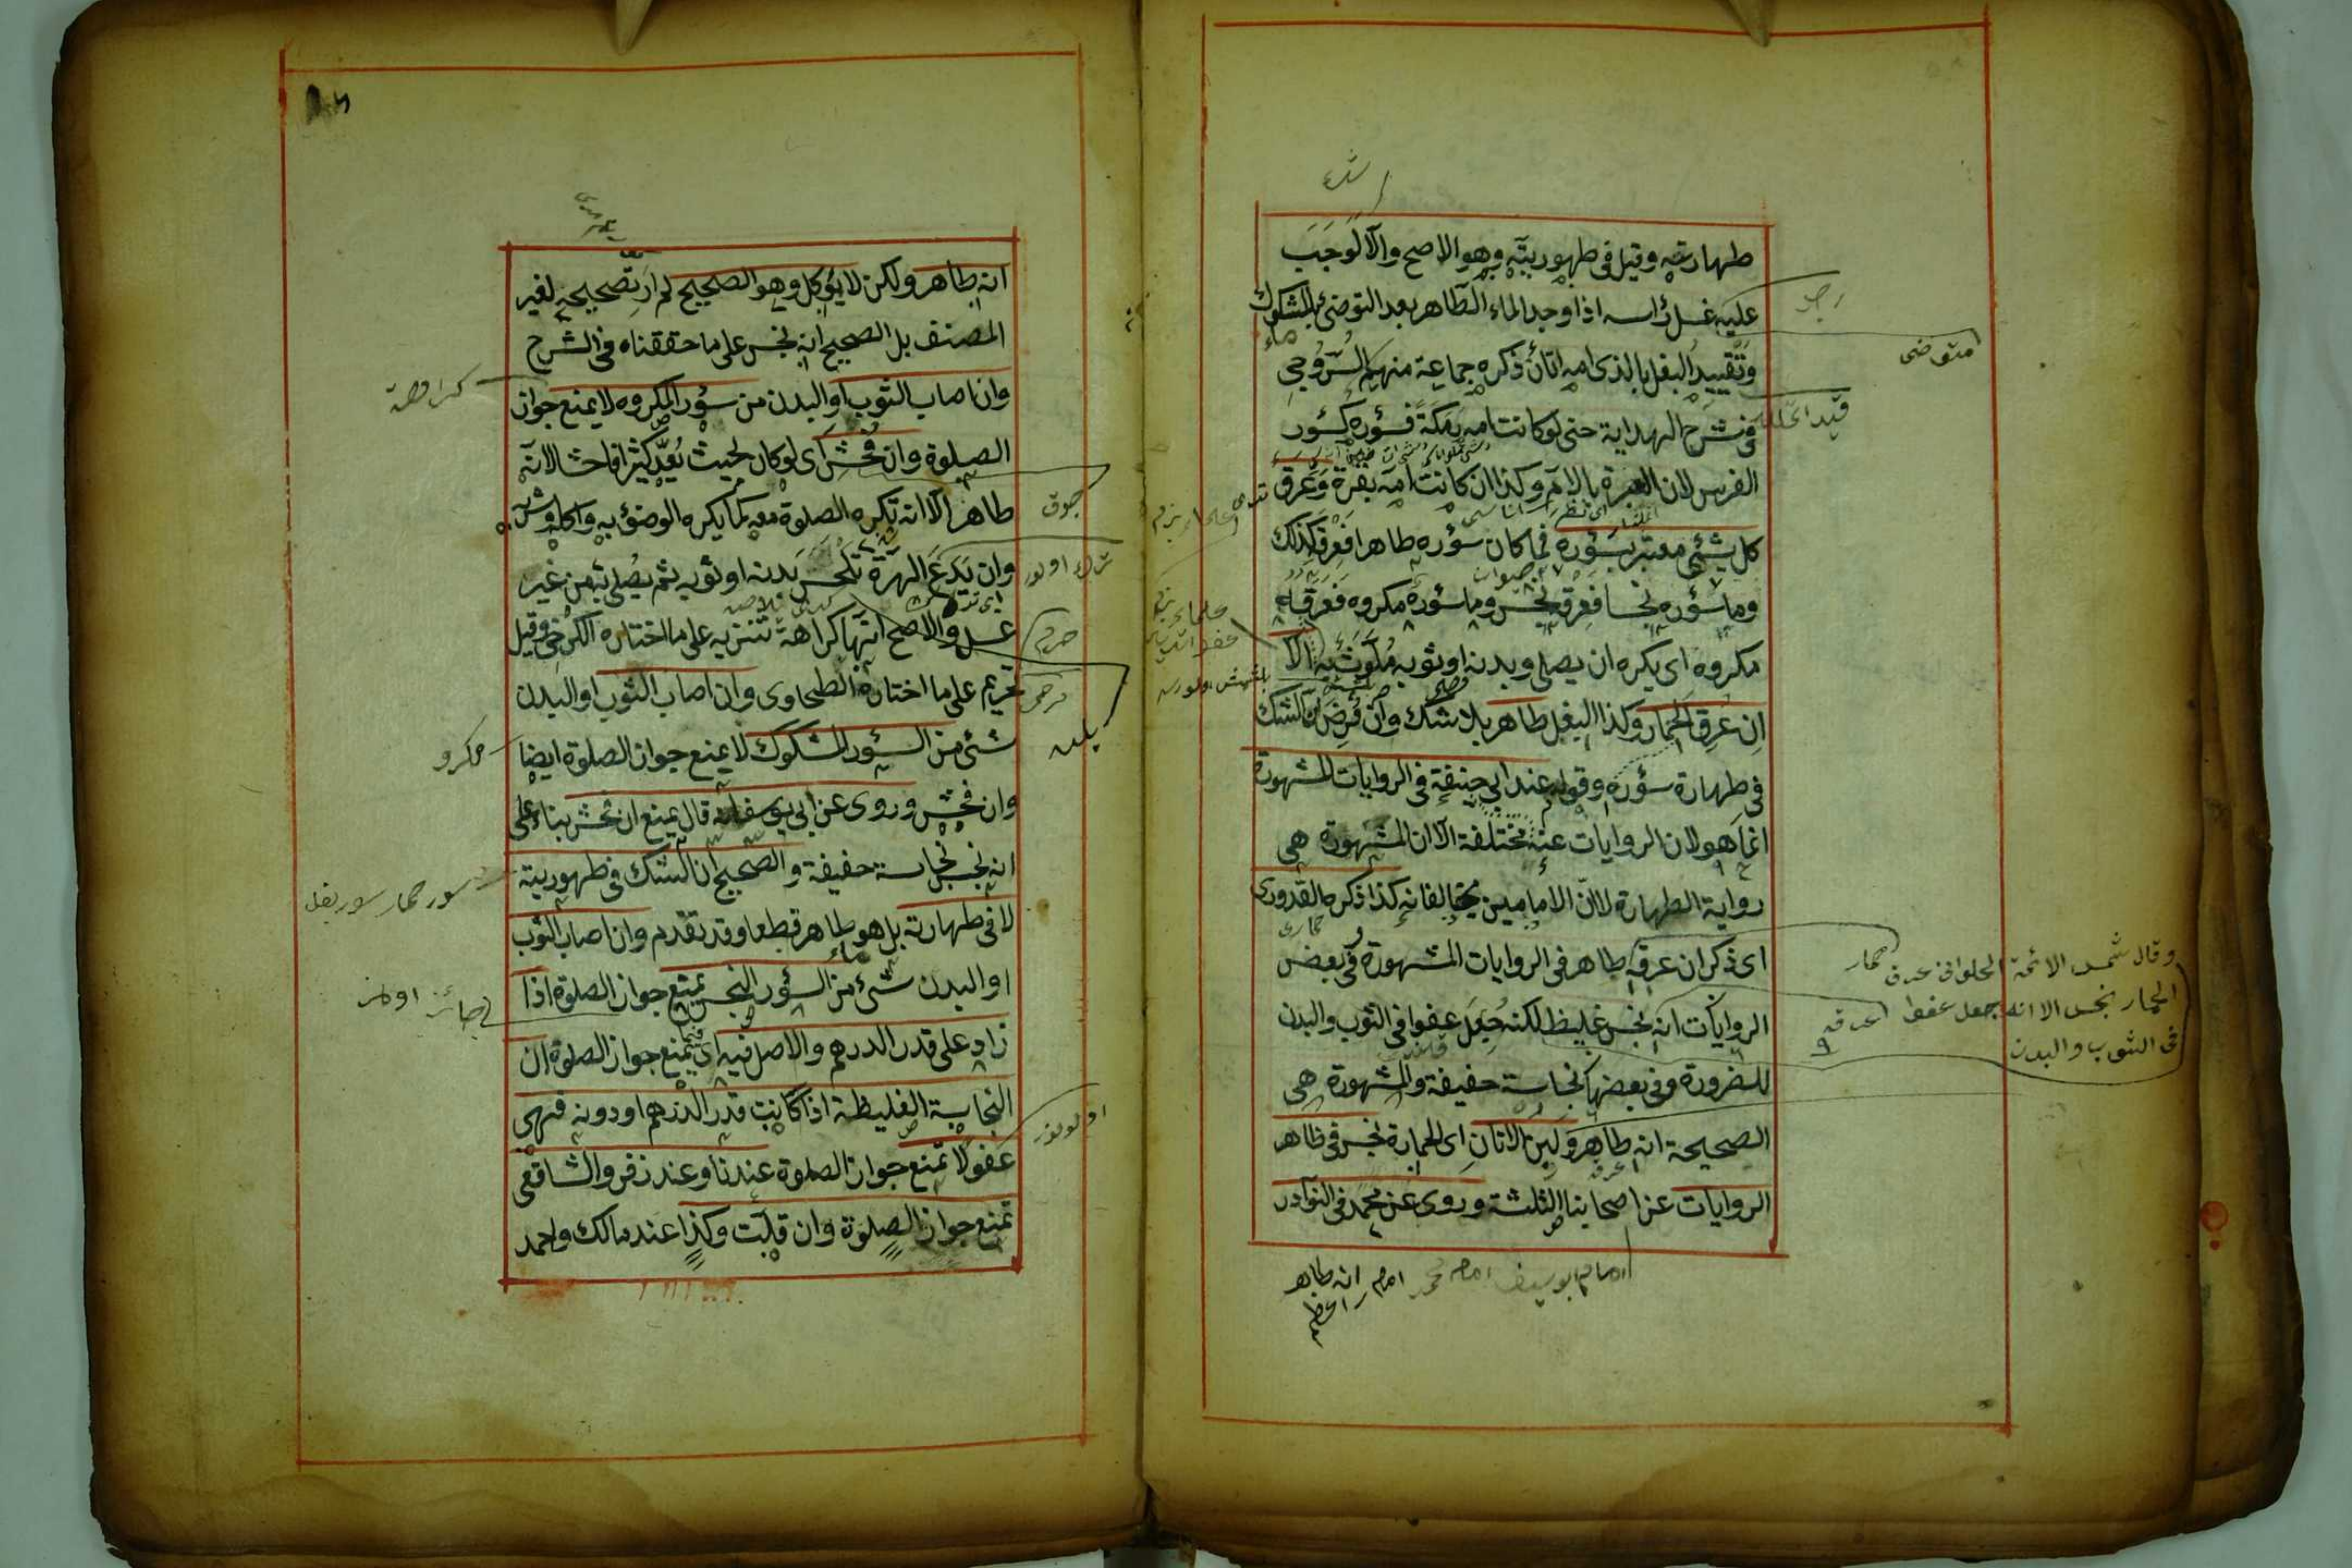 طهارته وقيل فى طهوريته وهو الاصح والا لوجب
عليه غسل رأسه اذا وجد الماء الطاهر بعد التوضئ بالمشكوك
وتقييد البغل بالذى امه اتان ذكره جماعة منهم السروجى
فى شرح الهداية حتى لو كانت امه رمكة فسؤره كسؤر
الفرس لان العبرة بالام وكذا ان كانت امه بقرة وعرق
كل شئ معتبر بسؤره فما كان سؤره طاهرا فعرقه كذلك
وما سؤره نجس فعرقه نجس وما سؤره مكروه فعرقه
مكروه اى يكره ان يصلى وبدنه او ثوبه ملوث به الا
ان عرق الحمار وكذا البغل طاهر بلا شك وان فرض الشك
فى طهارة سؤره وقوله عند ابى حنيفة فى الروايات المشهورة
انما هو لان الروايات عنه مختلفة الا ان المشهورة هى
رواية الطهارة لا ان الامامين يخالفانه كذا ذكره القدورى
اى ذكر ان عرقه طاهر فى الروايات المشهورة وفى بعض
الروايات انه نجس غليظ لكنه جعل عفوا فى الثوب والبدن
للضرورة وفى بعضها نجاسة خفيفة والمشهورة هى
الصحيحة انه طاهر ولبن الاتان اى الحمارة نجس فى ظاهر
الروايات عن اصحابنا الثلثة وروى عن محمد فى النوادر
امام ابو يوسف امام محمد امام
انه طاهر
رجل
متوضى
وقال شمس الائمة الحلوانى عرق
الحمار نجس الا انه جعل عفوا
فى الثوب والبدن
حمار
عرقه
انه طاهر ولكن لا يؤكل وهو الصحيح لم ار تصحيحه لغير
المصنف بل الصحيح انه نجس على ما حققناه فى الشرح
وان اصاب الثوب او البدن من سؤر المكروه لا يمنع جواز
الصلوة وان فحش اى لو كان بحيث يعد كثيرا فاحشا لانه
طاهر الا انه تكره الصلوة معه كما يكره الوضؤ به واكله وشربه
وان يدع الهرة تلحس بدنه او ثوبه ثم يصلى به من غير
غسل والاصح انها كراهة تنزيه على ما اختاره الكرخى وقيل
تحريم على ما اختاره الطحاوى وان اصاب الثوب او البدن
شئ من السؤر المشكوك لا يمنع جواز الصلوة ايضا
وان فحش وروى عن ابى يوسف انه قال يمنع ان فحش بناء على
انه نجس نجاسة خفيفة والصحيح ان الشك فى طهوريته
لا فى طهارته بل هو طاهر قطعا وقد تقدم وان اصاب الثوب
او البدن شئ من السؤر النجس يمنع جواز الصلوة اذا
زاد على قدر الدرهم والاصل فيه اى فيما يمنع جواز الصلوة ان
النجاسة الغليظة اذا كانت قدر الدرهم او دونه فهى
عفو لا تمنع جواز الصلوة عندنا وعند زفر والشافعى
تمنع جواز الصلوة وان قلت وكذا عند مالك واحمد
جوق
مكرو
سور حمار سور بغل
جائز اولمز